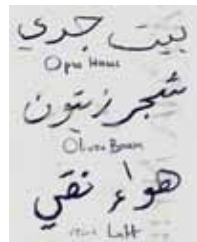 بيت جدي
Opas Haus
شجر زيتون
Oliven Baum
هواء نقي
Luft